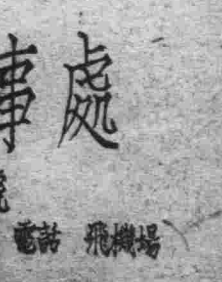 事處
電話 飛機場